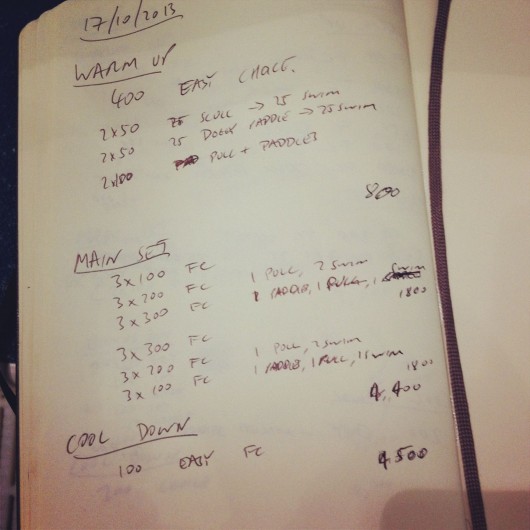 17/10/2013
WARM UP
400 EASY CHOICE.
2x50 25 SCULL → 25 SWIM
2x50 25 DOGGY PADDLE → 25 SWIM
2x100 PULL + PADDLES
800
MAIN SET
3x100 FC
3x200 FC 1 PULL, 2 SWIM
3x300 FC 1 PADDLE, 1 PULL, 1 SWIM
1800
3x300 FC
3x200 FC 1 PULL, 2 SWIM
3x100 FC 1 PADDLE, 1 PULL, 1 SWIM
1800
4,400
COOL DOWN
100 EASY FC
4500